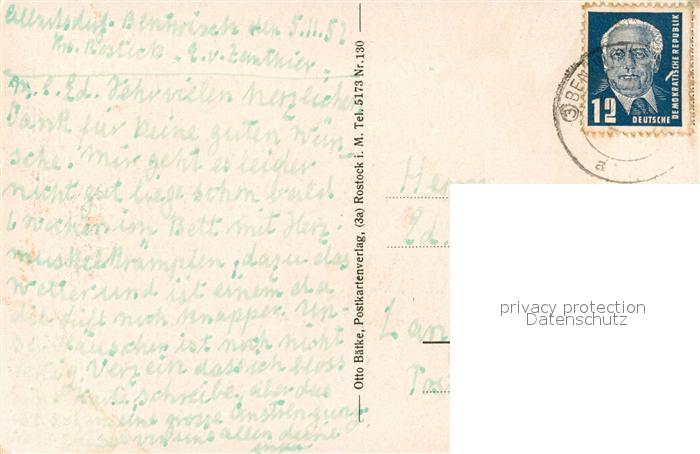 Albertsdorf. Bentwisch den 5.11.52
Kr. Rostock. E. v. Zanthier
M. l. Ed. Sehr vielen herzlichen
Dank für Deine guten Wün-
sche. Mir geht es leider
nicht gut liege schon bald
6 Wochen im Bett mit Herz-
muskelkrämpfen, dazu das
Wetter und ist einem da
die Luft noch knapper. Un-
ser Häuschen ist noch nicht
fertig. Verzeih dass ich bloss
Karte schreibe, aber das
ist schon eine grosse Anstrengung.
von uns allen Deine
Otto Bätke, Postkartenverlag, (3a) Rostock i. M. Tel. 5173 Nr. 130
12
DEUTSCHE
DEMOKRATISCHE REPUBLIK
(3) BEN
a
Herrn
Ed.
Lan
privacy protection
Datenschutz